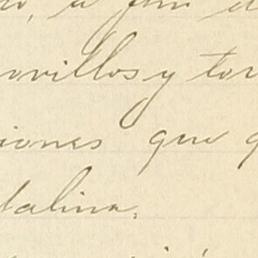 a fin d
ovillos y tor
iones que q
talina.